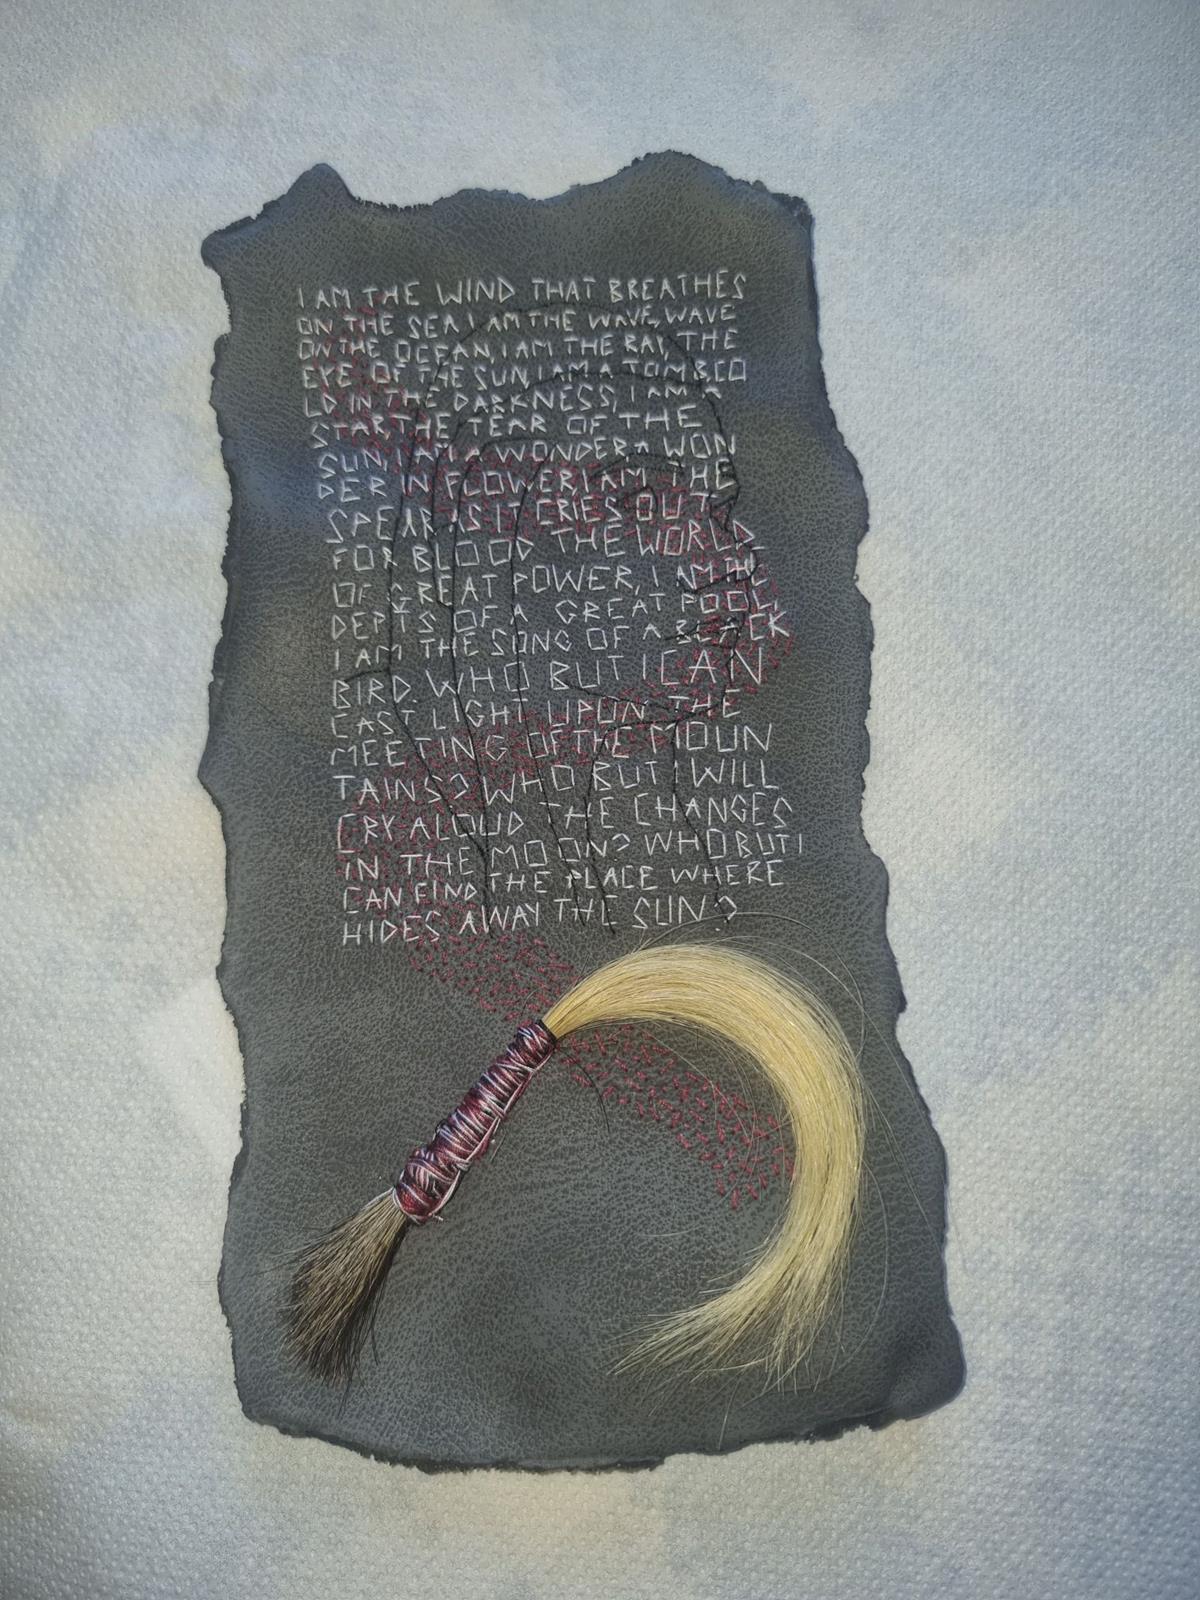 I AM THE WIND THAT BREATHES
ON THE SEA I AM THE WAVE, WAVE
ON THE OCEAN, I AM THE RAY, THE
EYE OF THE SUN, I AM A TOMB, CO
LD IN THE DARKNESS, I AM A
STAR, THE TEAR OF THE
SUN, I AM A WONDER A WON
DER IN FLOWER I AM THE
SPEAR AS IT CRIES OUT
FOR BLOOD THE WORLD
OF GREAT POWER, I AM THE
DEPTS OF A GREAT POOL,
I AM THE SONG OF A BLACK
BIRD. WHO BUT I CAN
CAST LIGHT UPON THE
MEETING OF THE MOUN
TAINS? WHO BUT I WILL
CRY ALOUD THE CHANGES
IN THE MOON? WHO BUT I
CAN FIND THE PLACE WHERE
HIDES AWAY THE SUN?